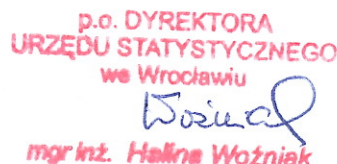 p.o. DYREKTORA
URZĘDU STATYSTYCZNEGO
we Wrocławiu
Woźniak
mgr inż. Halina Woźniak